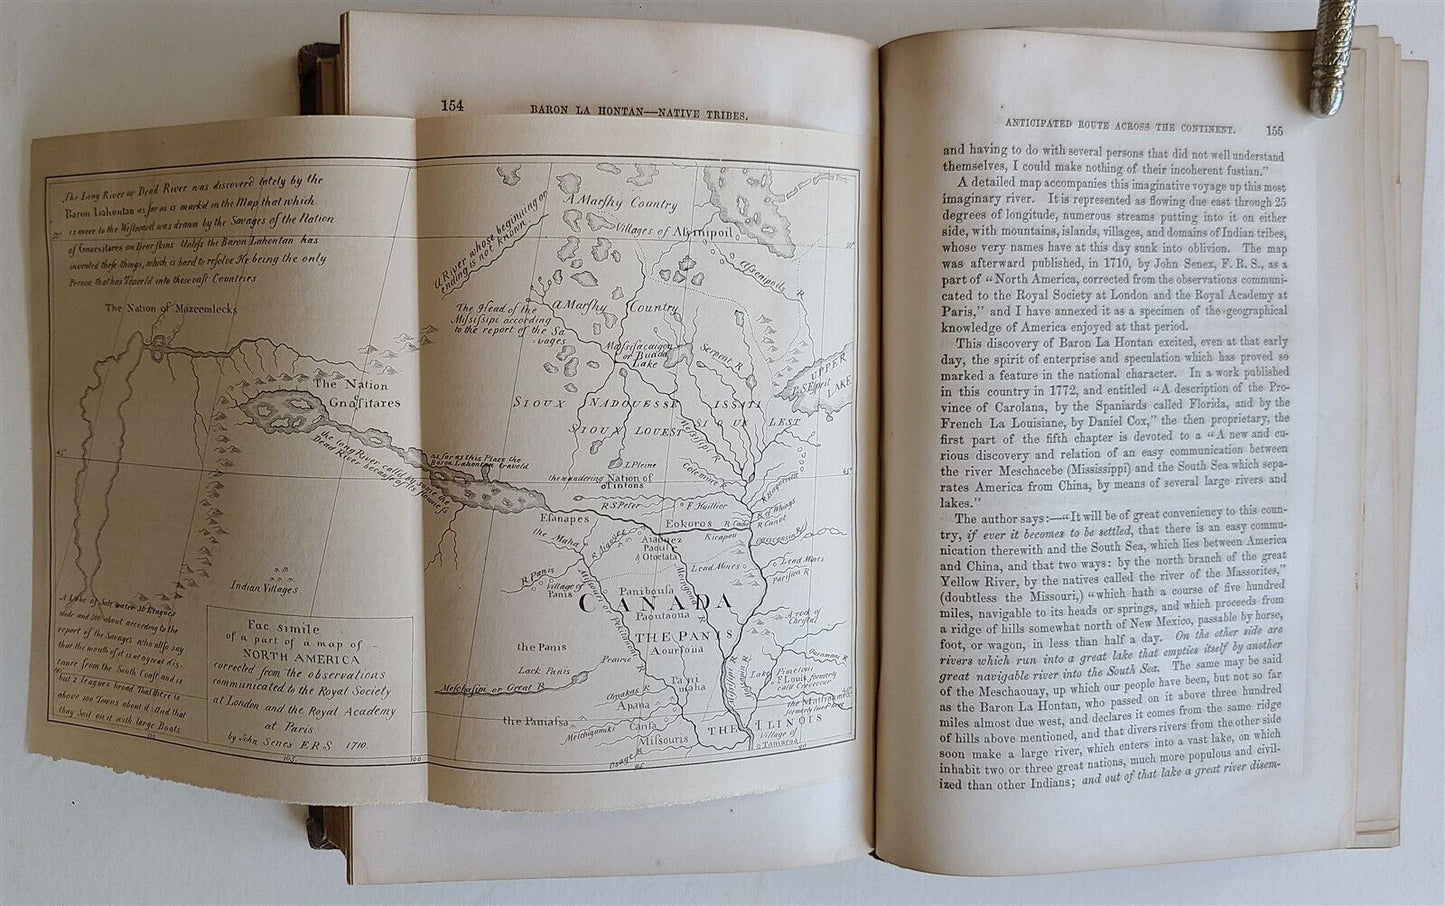 154
BARON LA HONTAN—NATIVE TRIBES.
The Long River or Dead River was discoverd lately by the
Baron Lahontan as far as is markd in the Map that which
is more to the Westward was drawn by the Savages of the Nation
of Gnacsitares on Dear skins Unless the Baron Lahontan has
invented these things, which is hard to resolve He being the only
Person that has Traveld into these vast Countries
The Nation of Mozeemlecks
The Nation
Gnasitares
the long River, calld by some the
Dead River because of its Stillness
as far as this Place the
Baron Lahontan traveld
Indian Villages
A Lake of Salt water 30 Leagues
wide and 300 about according to the
report of the Savages who also say
that the mouth of it is at a great dis-
tance from the South Coast and is
but 2 Leagues broad That there is
about 100 Towns about it And that
they Sail on it with large Boats
Fac simile
of a part of a map of
NORTH AMERICA
corrected from the observations
communicated to the Royal Society
at London and the Royal Academy
at Paris.
by John Senex F.R.S 1710.
105.
100
95
90
45
45
50
50
40
A River whose beginning or
ending is not known.
A Marshy Country
Villages of Assinipoil
Assenipoils R
The Head of the
Missisipi according
to the report of the Sa
vages
A Marshy Country
Massacaigon
or Buade
Lake
Serpent R
UPPER
LAKE
SIOUX NADOUESSI ISSATI
SIOUX LOUEST SIOUX LEST
Missisipi R
I. Pleine
the wandering Nation of
Tintons
R S Peter
F. Huillier
Eokoros
Esanapes
the Maha
Kicapou
Ouisconsing R
Lead Mines
Lead Mines
Parisien R
R Panis
Village of
Panis
Paniboussa
Paoutaoua
CANADA
A rock of
Chrystal
THE PANIS
Aourouia
the Panis
Lack Panis
Prairie
Pani
maha
Meschasipi or Great R
Apana
the Paniassa
Melchigamiki
Cansa
Missouris
Osages R
THE ILINOIS
Village of
Tamaroa
ANTICIPATED ROUTE ACROSS THE CONTINENT.
155
and having to do with several persons that did not well understand
themselves, I could make nothing of their incoherent fustian."
A detailed map accompanies this imaginative voyage up this most
imaginary river. It is represented as flowing due east through 25
degrees of longitude, numerous streams putting into it on either
side, with mountains, islands, villages, and domains of Indian tribes,
whose very names have at this day sunk into oblivion. The map
was afterward published, in 1710, by John Senex, F. R. S., as a
part of "North America, corrected from the observations communi-
cated to the Royal Society at London and the Royal Academy at
Paris," and I have annexed it as a specimen of the geographical
knowledge of America enjoyed at that period.
This discovery of Baron La Hontan excited, even at that early
day, the spirit of enterprise and speculation which has proved so
marked a feature in the national character. In a work published
in this country in 1772, and entitled "A description of the Pro-
vince of Carolana, by the Spaniards called Florida, and by the
French La Louisiane, by Daniel Cox," the then proprietary, the
first part of the fifth chapter is devoted to a "A new and cu-
rious discovery and relation of an easy communication between
the river Meschacebe (Mississippi) and the South Sea which sepa-
rates America from China, by means of several large rivers and
lakes."
The author says:—"It will be of great conveniency to this coun-
try, if ever it becomes to be settled, that there is an easy commu-
nication therewith and the South Sea, which lies between America
and China, and that two ways: by the north branch of the great
Yellow River, by the natives called the river of the Massorites,"
(doubtless the Missouri,) "which hath a course of five hundred
miles, navigable to its heads or springs, and which proceeds from
a ridge of hills somewhat north of New Mexico, passable by horse,
foot, or wagon, in less than half a day. On the other side are
rivers which run into a great lake that empties itself by another
great navigable river into the South Sea. The same may be said
of the Meschaouay, up which our people have been, but not so far
as the Baron La Hontan, who passed on it above three hundred
miles almost due west, and declares it comes from the same ridge
of hills above mentioned, and that divers rivers from the other side
soon make a large river, which enters into a vast lake, on which
inhabit two or three great nations, much more populous and civil-
ized than other Indians; and out of that lake a great river disem-